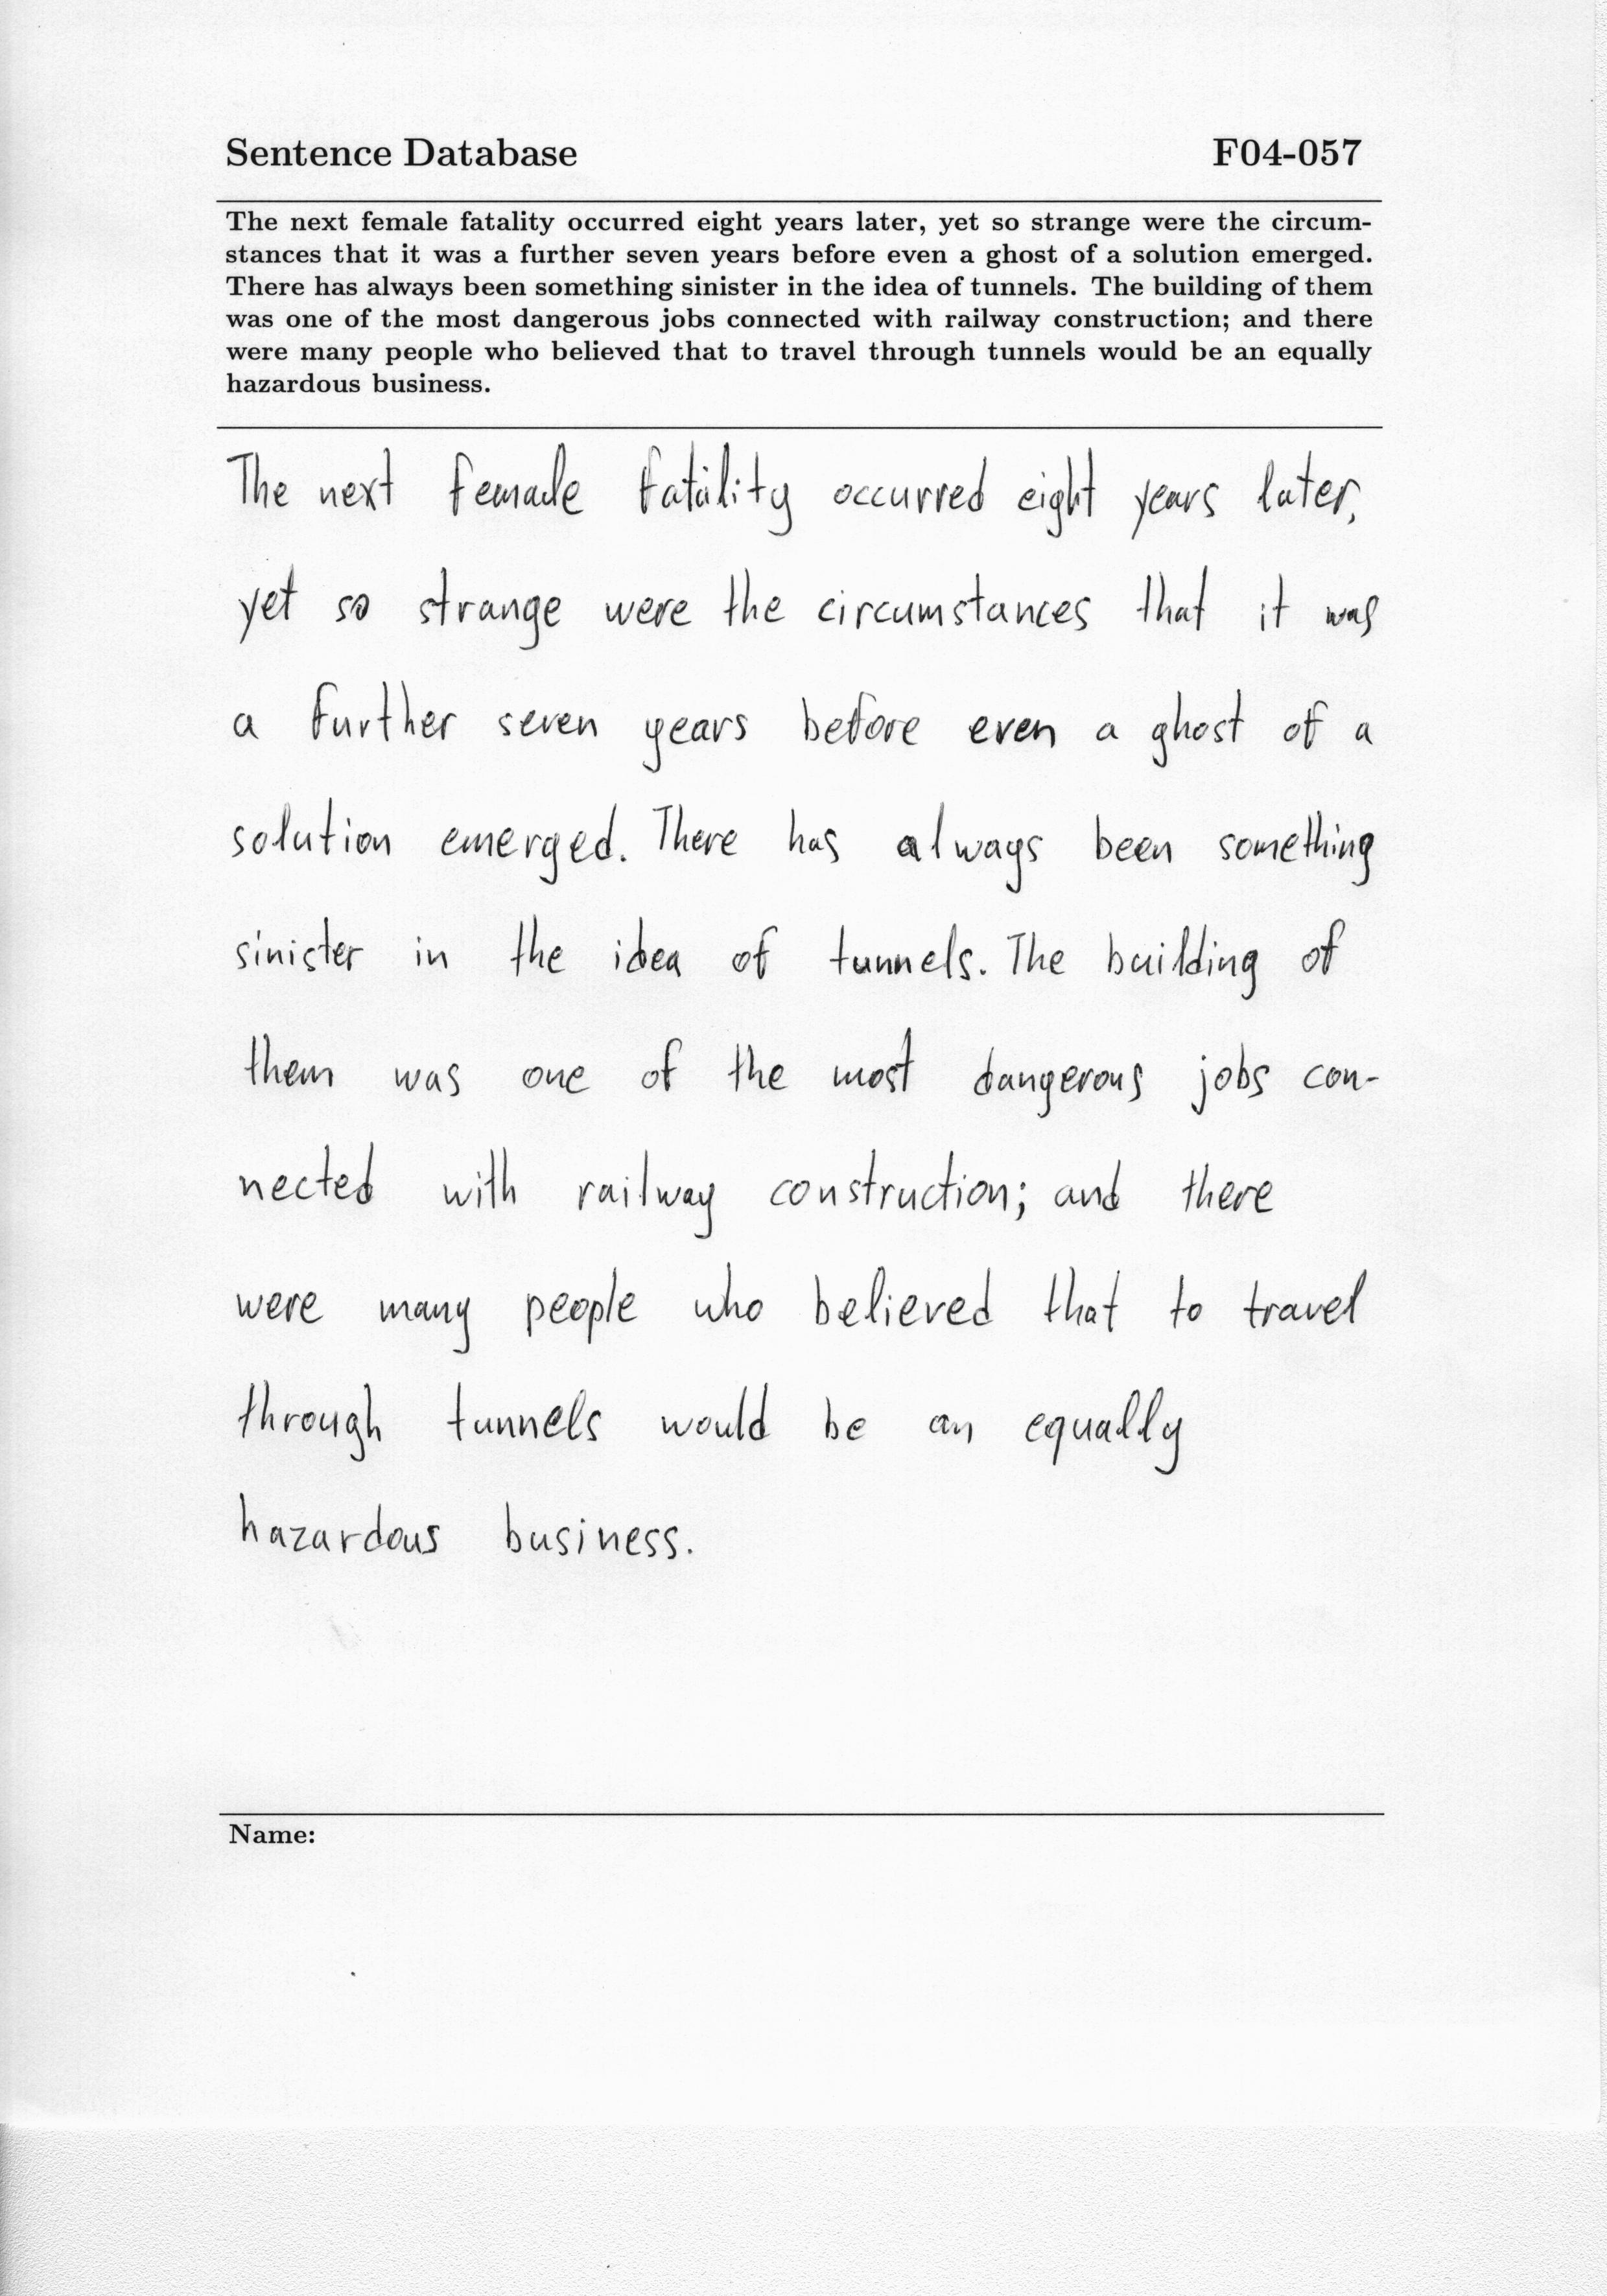 Sentence Database F04-057
The next female fatality occurred eight years later, yet so strange were the circum-
stances that it was a further seven years before even a ghost of a solution emerged.
There has always been something sinister in the idea of tunnels. The building of them
was one of the most dangerous jobs connected with railway construction; and there
were many people who believed that to travel through tunnels would be an equally
hazardous business.
The next female fatality occurred eight years later,
yet so strange were the circumstances that it was
a further seven years before even a ghost of a
solution emerged. There has always been something
sinister in the idea of tunnels. The building of
them was one of the most dangerous jobs con-
nected with railway construction; and there
were many people who believed that to travel
through tunnels would be an equally
hazardous business.
Name: